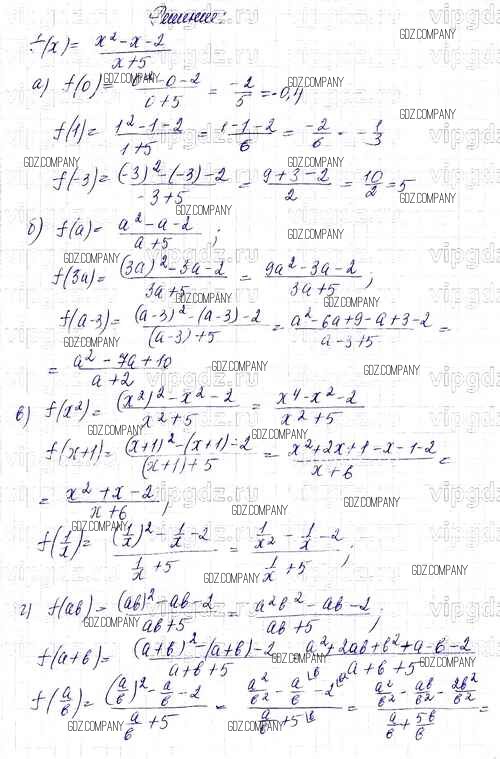 Решение:
f(x) = (x² - x - 2)/(x + 5)
а) f(0) = (0² - 0 - 2)/(0 + 5) = -2/5 = -0,4
f(1) = (1² - 1 - 2)/(1 + 5) = (1 - 1 - 2)/6 = -2/6 = -1/3
f(-3) = ((-3)² - (-3) - 2)/(-3 + 5) = (9 + 3 - 2)/2 = 10/2 = 5
б) f(a) = (a² - a - 2)/(a + 5);
f(3a) = ((3a)² - 3a - 2)/(3a + 5) = (9a² - 3a - 2)/(3a + 5);
f(a-3) = ((a-3)² - (a-3) - 2)/((a-3) + 5) = (a² - 6a + 9 - a + 3 - 2)/(a - 3 + 5) =
= (a² - 7a + 10)/(a + 2)
в) f(x²) = ((x²)² - x² - 2)/(x² + 5) = (x⁴ - x² - 2)/(x² + 5)
f(x+1) = ((x+1)² - (x+1) - 2)/((x+1) + 5) = (x² + 2x + 1 - x - 1 - 2)/(x + 6) =
= (x² + x - 2)/(x + 6);
f(1/x) = ((1/x)² - 1/x - 2)/(1/x + 5) = (1/x² - 1/x - 2)/(1/x + 5);
г) f(ab) = ((ab)² - ab - 2)/(ab + 5) = (a²b² - ab - 2)/(ab + 5);
f(a+b) = ((a+b)² - (a+b) - 2)/(a + b + 5) = (a² + 2ab + b² + a - b - 2)/(a + b + 5)
f(a/b) = ((a/b)² - a/b - 2)/(a/b + 5) = (a²/b² - a/b - 2)/(a/b + 5) = (a²/b² - ab/b² - 2b²/b²)/(a/b + 5b/b) =
GDZ.COMPANY
vipgdz.ru